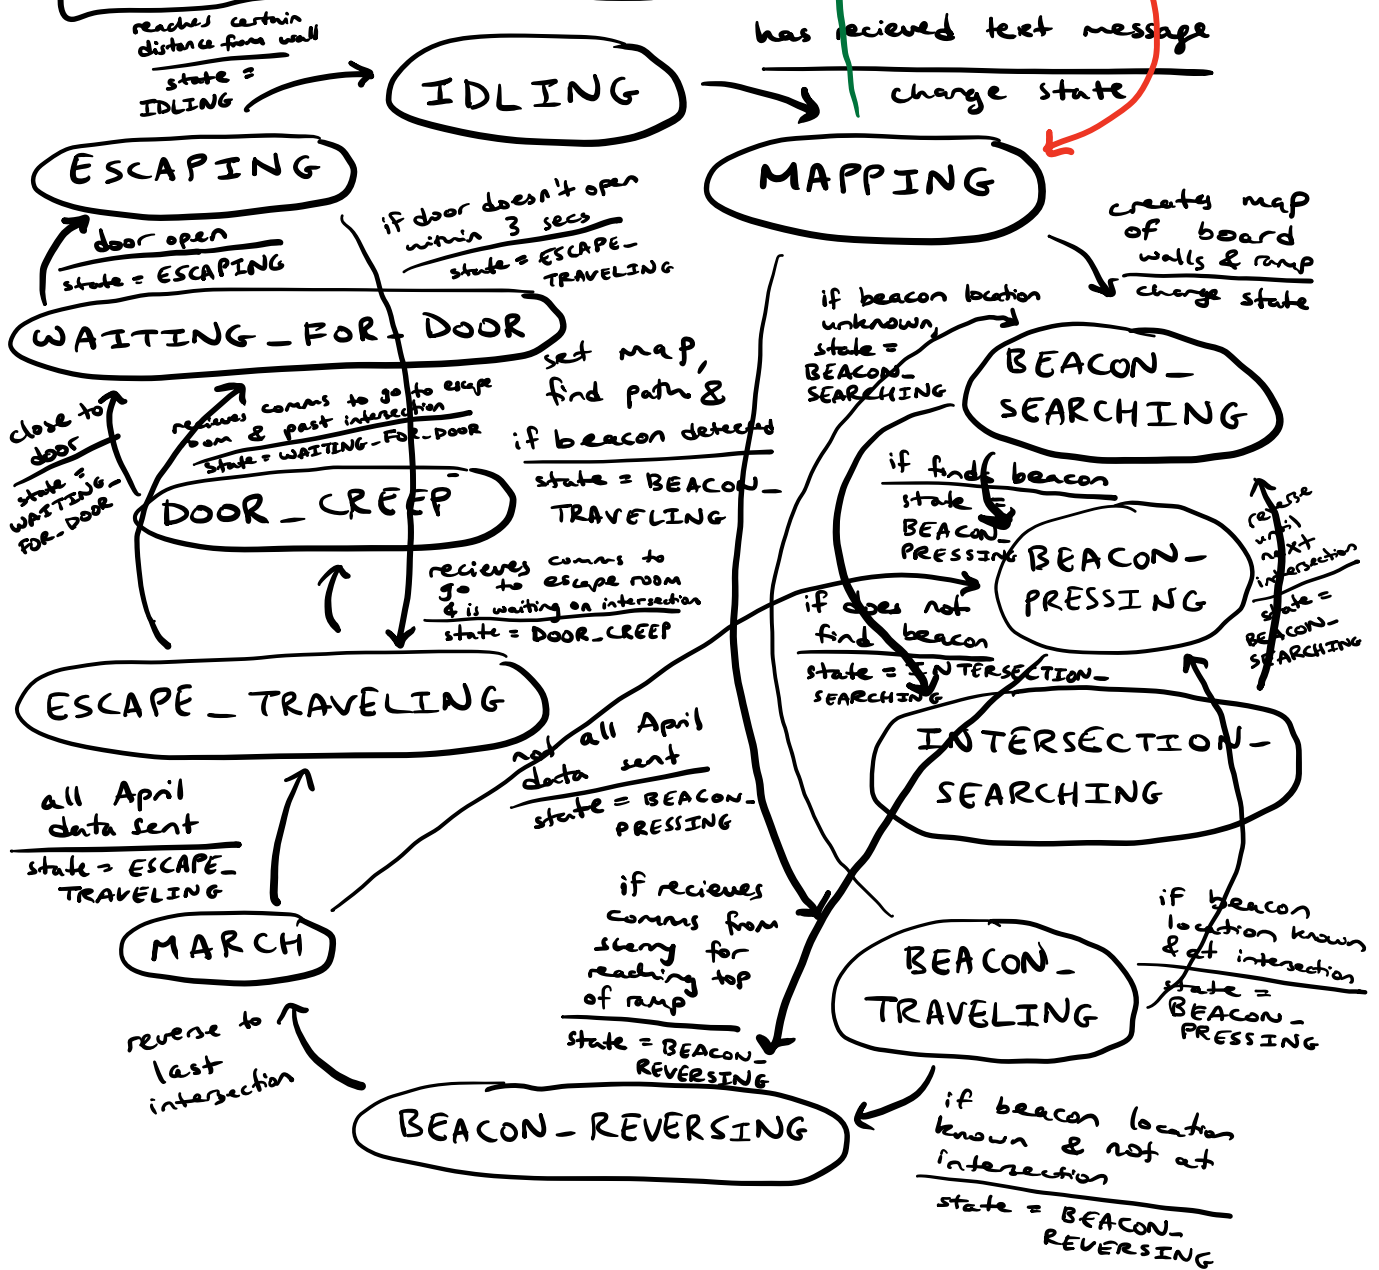 reaches certain
distance from wall
state =
IDLING
IDLING
has recieved text message
change state
ESCAPING
MAPPING
door open
state = ESCAPING
if door doesn't open
within 3 secs
state = ESCAPE_
TRAVELING
creates map
of board
walls & ramp
change state
WAITING_FOR_DOOR
if beacon location
unknown,
state =
BEACON_
SEARCHING
BEACON_
SEARCHING
set map,
find path &
if beacon detected
state = BEACON_
TRAVELING
close to
door
state =
WAITING_
FOR_DOOR
recieves comms to go to escape
oom & past intersection
state = WAITING_FOR_DOOR
DOOR_CREEP
if finds beacon
state =
BEACON_
PRESSING
BEACON_
PRESSING
reverse
until
next
intersection
state =
BEACON_
SEARCHING
recieves comms to
go to escape room
& is waiting on intersection
state = DOOR_CREEP
if does not
find beacon
state = INTERSECTION_
SEARCHING
ESCAPE_TRAVELING
INTERSECTION_
SEARCHING
not all April
data sent
state = BEACON_
PRESSING
all April
data sent
state = ESCAPE_
TRAVELING
MARCH
if recieves
comms from
for
reaching top
of ramp
state = BEACON_
REVERSING
BEACON_
TRAVELING
if beacon
location known
& at intersection
state =
BEACON_
PRESSING
reverse to
last
intersection
BEACON_REVERSING
if beacon location
known & not at
intersection
state = BEACON_
REVERSING